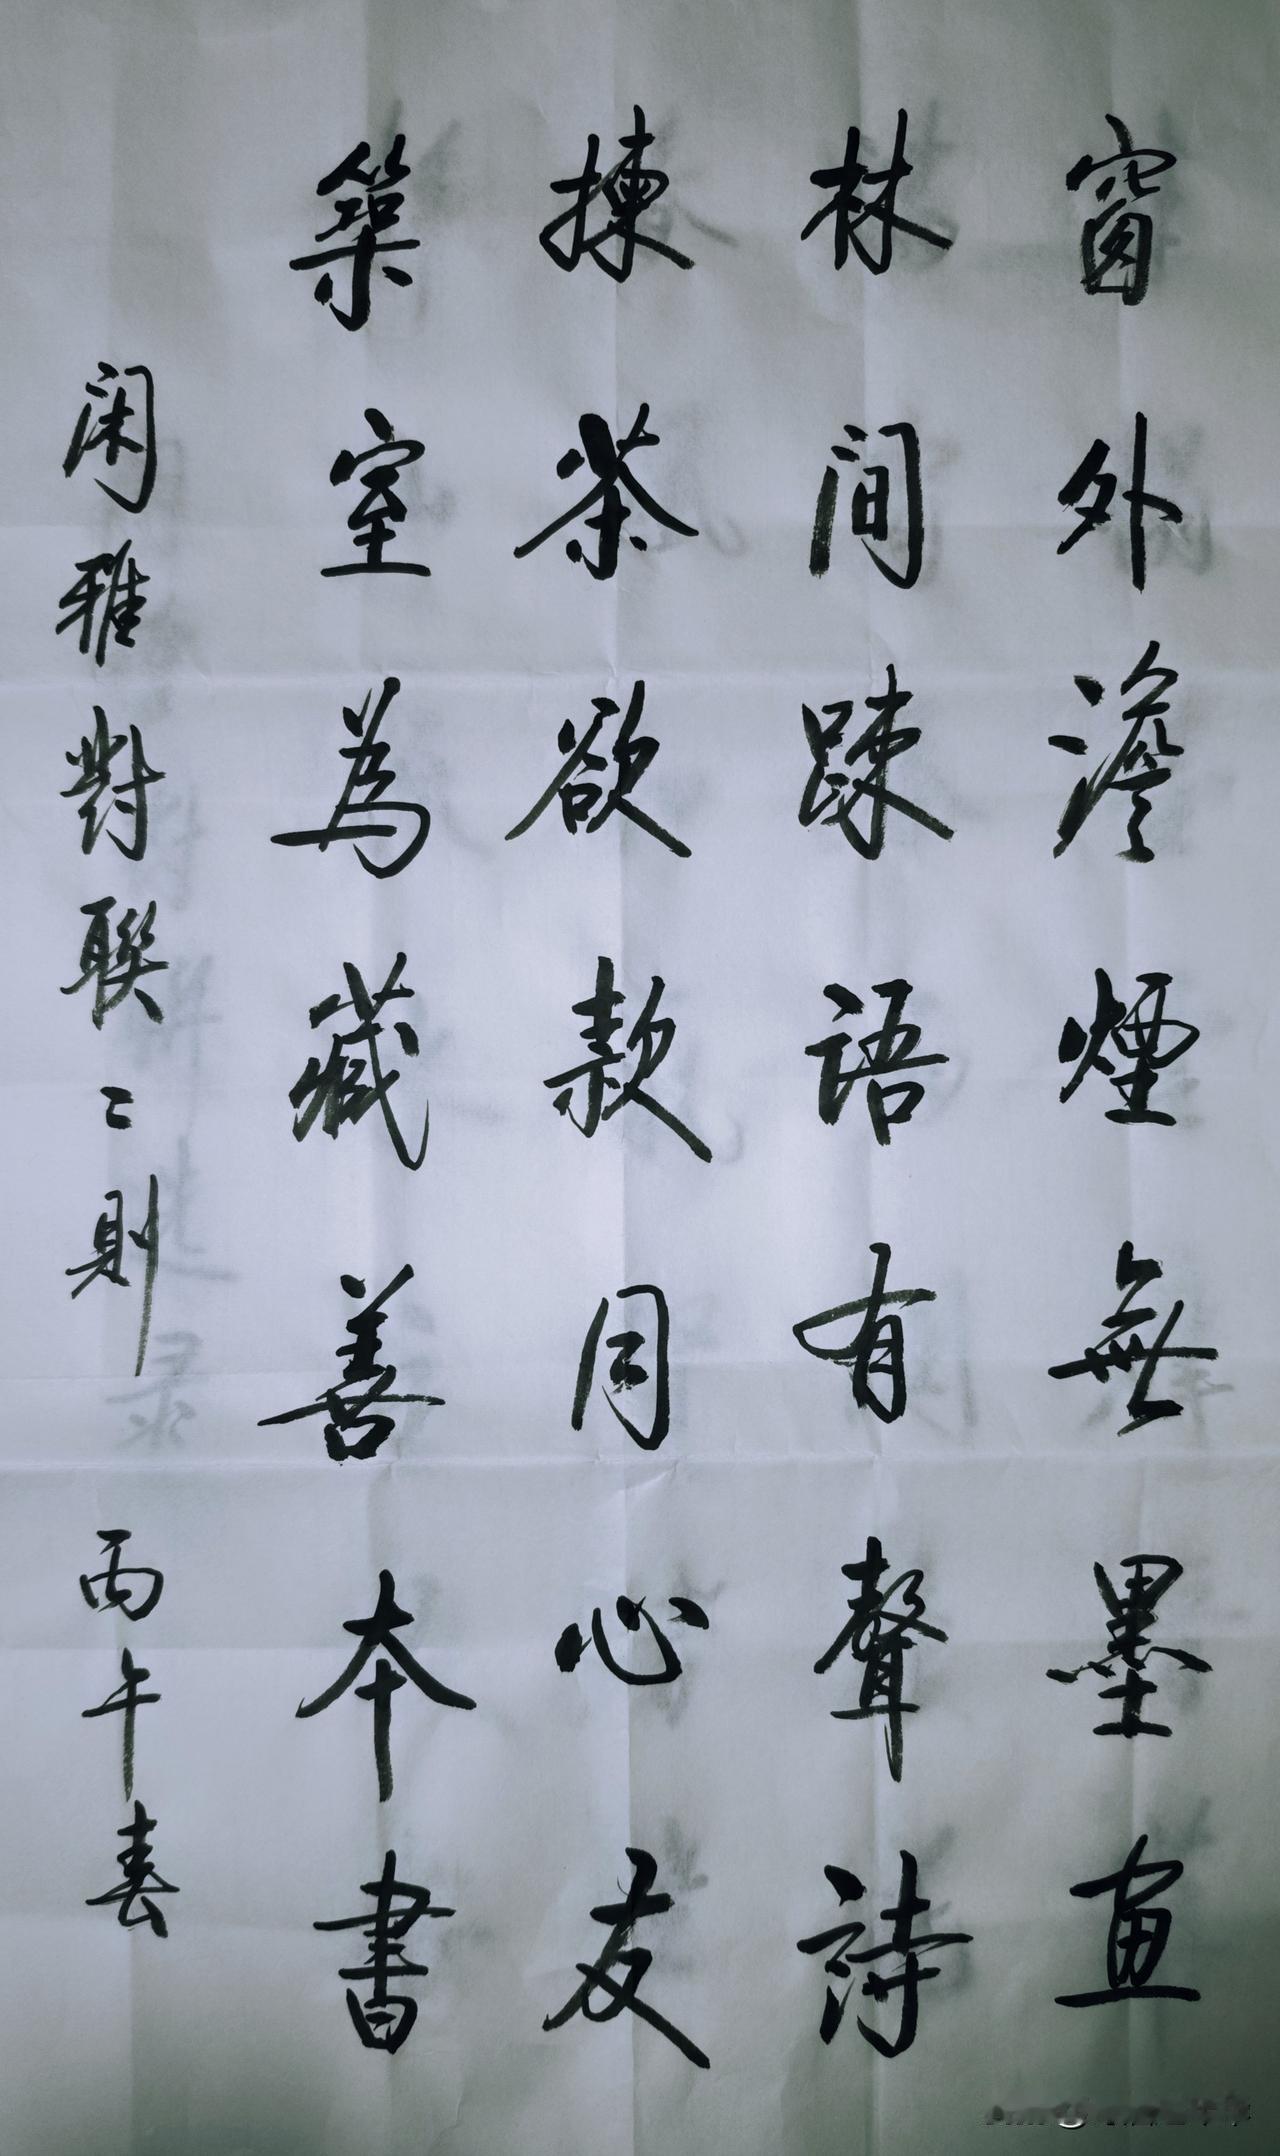 窗外澹煙無墨画
林间踈語有聲詩
揀茶欲款同心友
築室為藏善本書
闲雅對聯二則 丙午春